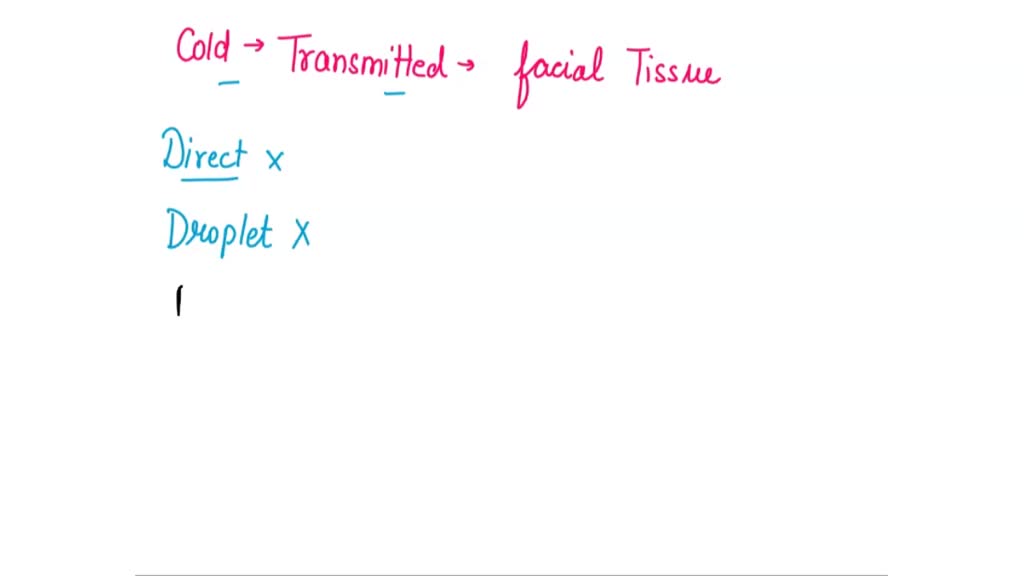 Cold → Transmitted → facial Tissue
Direct x
Droplet x